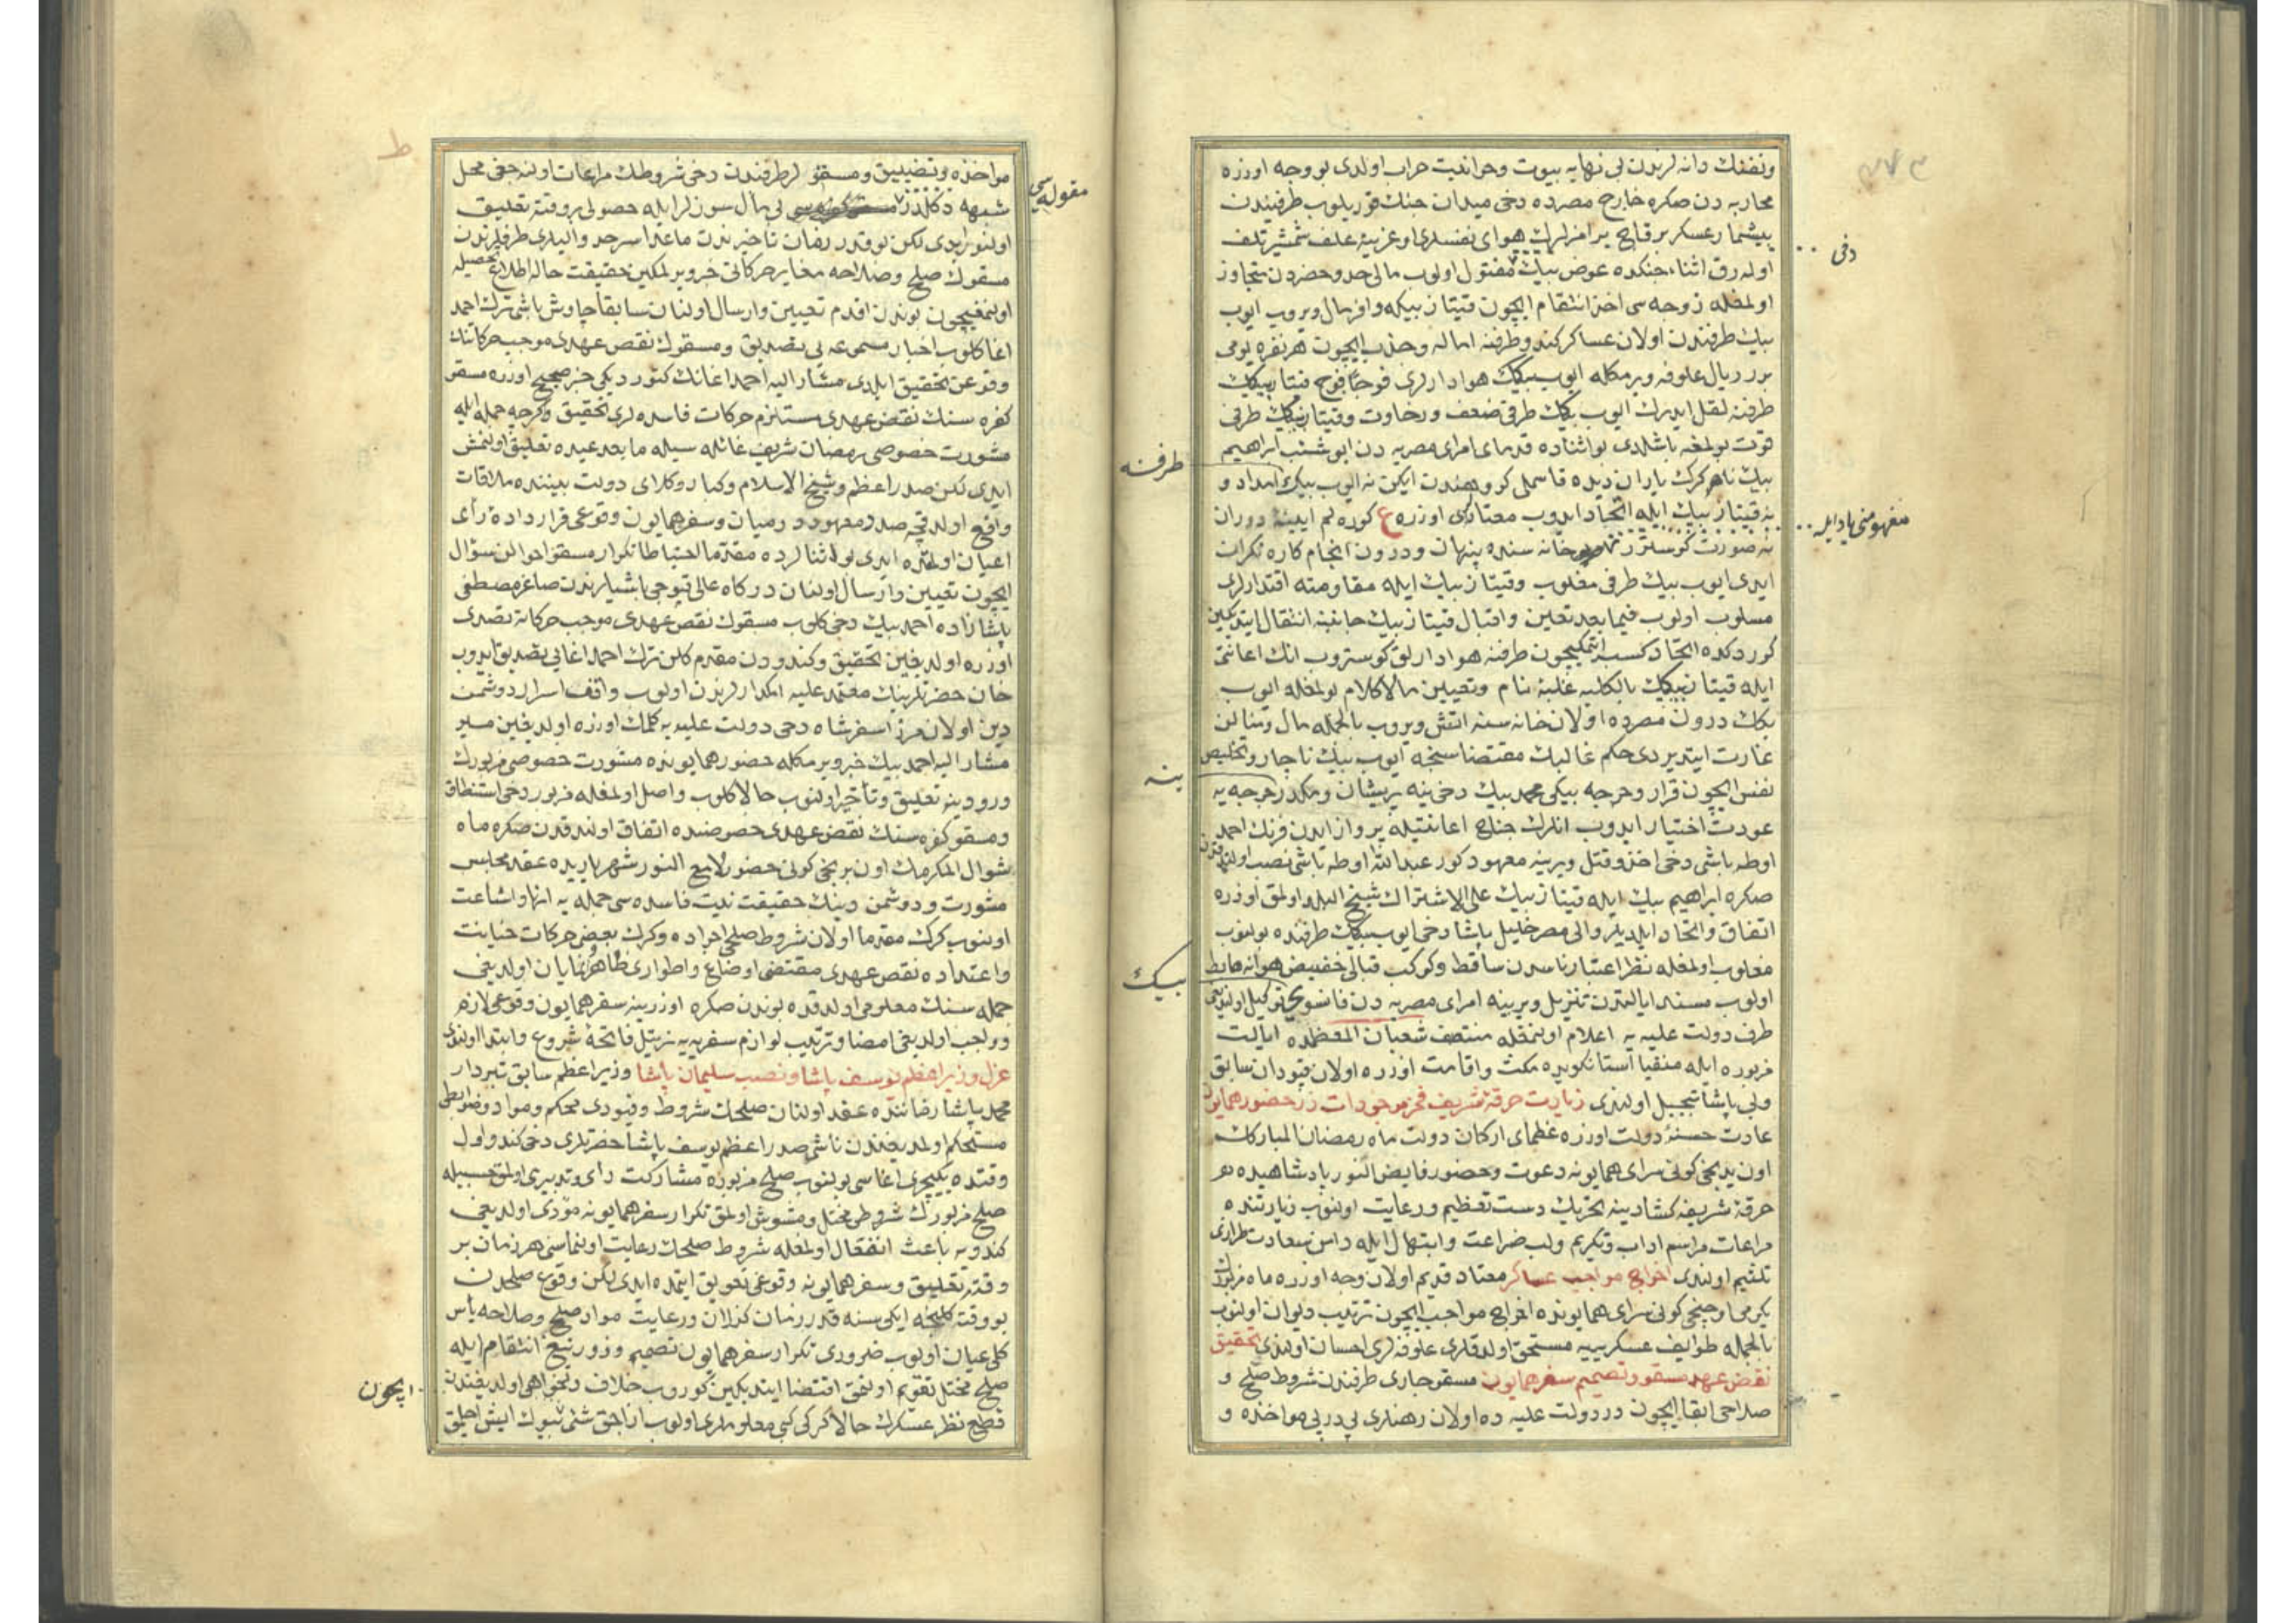 وتفنك دانه لرندن بی نهایه بیوت وحوانیت خراب اولدی بو وجه اوزره
محاربه دن صکره خارج مصرده دخی میدان جنك قوریلوب طرفیندن
بیشمار عسکر برقاچ یرامزلرك هوای نفسلری اوغرینه علف شمشیر تلف
اوله رق اثناء جنکده عوض بیك مقتول اولوب مالی حد وحصردن متجاوز
اولمغله زوجه سی اخذ انتقام ایچون قیتاز بیکه وافر مال ویروب ایوب
بیك طرفندن اولان عساکر کندو طرفنه اماله وجذب ایچون هر نفره یومی
برر ریال علوفه ویرمکله ایوب بیکك هوادارلری فوجا فوج قیتاز بیکك
طرفنه نقل ایدرك ایوب بیکك طرفی ضعف ورخاوت وقیتاز بیکك طرفی
قوت بولمغه باشلدی بو اثناده قدمای امرای مصریه دن ابو شنب ابراهیم
بیك نام کرك باران دیده قاسملی کروهندن ایکن نه ایوب بیکه امداد و
نه قیتاز بیك ایله اتحاد ایدوب معتادلری اوزره ع کوره لم ایینهٔ دوران
نه صورت کوستر خانه سنده پنهان ودرون انجام کاره نکران
ایدی ایوب بیك طرفی مغلوب وقیتاز بیك ایله مقاومته اقتدارلری
مسلوب اولوب فیما بعد تعین واقبال قیتاز بیك جانبنه انتقال ایتدیکین
کوردکده اتحاد کسب ایتمکیچون طرفنه هوادارلق کوستروب انك اعانتی
ایله قیتاز بیکك بالکلیه غلبهٔ تام وتعیین مالاکلام بولمغله ایوب
بیکك درون مصرده اولان خانه سنه اتش ویروب بالجمله مال ومنالن
غارت ایتدیردی حکم غالبك مقتضاسنجه ایوب بیك ناچار وتخلیص
نفس ایچون فرار وجرجه بیکی محمد بیك دخی ینه پریشان ومکدر جرجه یه
عودت اختیار ایدوب انلرك جناح اعانتیله پرواز ایدن فرنك احمد
اوطه باشی دخی اخذ وقتل ویرینه معهود کور عبدالله اوطه باشی نصب اولندقدن
صکره ابراهیم بیك ایله قیتاز بیك علی الاشتراك شیخ البلد اولمق اوزره
اتفاق واتحاد ایلدیلر والی مصر خلیل پاشا دخی ایوب بیکك طرفنده بولنوب
مغلوب اولمغله نظر اعتبار ناسدن ساقط وکوکب اقبالی حضیض هوانه هابط
اولوب مسند ایالتدن تنزیل ویرینه امرای مصریه دن قانسو بیك توکیل اولندیغی
طرف دولت علیه یه اعلام اولنمغله منتصف شعبان المعظمده ایالت
مزبوره ایله منفیا استانکویده مکث واقامت اوزره اولان قپودان سابق
ولی پاشا تبجیل اولندی زیارت خرقهٔ شریف فخر موجودات در حضور همایون
عادت حسنهٔ دولت اوزره عظمای ارکان دولت ماه رمضان المبارکك
اون بدنجی کونی سرای همایونه دعوت وحضور فایض النور پادشاهیده هر
خرقهٔ شریفه کشادینه تحریك دست تعظیم ورعایت اولنوب زیارتنده
مراعات مراسم اداب وتکریم ولب ضراعت وابتهال ایله دامن سعادت طرازی
تلثیم اولندی اخراج مواجب عساکر معتاد قدیم اولان وجه اوزره ماه مزبورك
یکرمی اوچنجی کونی سرای همایونده اخراج مواجب ایچون ترتیب دیوان اولنوب
بالجمله طوایف عسکرییه مستحق اولدقلری علوفه لری احسان اولندی تحقیق
نقض عهد مسقو وتصمیم سفر همایون مسقو چاری طرفندن شروط صلح و
صلاحی ابقا ایچون در دولت علیه ده اولان رهنلری پی در پی مواخذه و
دخی
مفهومنی یاد ایله
طرفنه
ینه
بیك
مواخذه وتضییق ومسقولر طرفندن دخی شروطك مراعات اولنه جغی محل
شبهه دکلدر بی مال سوزلر ایله حصولی بر وقته تعلیق
اولنور ایدی لکن بو قدر زمان تأخیرندن ماعدا سرحد والیلری طرفلرندن
مسقونك صلح وصلاحه مغایر حرکاتی خبر ویرلمکین حقیقت حاله اطلاع تحصیله
اولنمغیچون بوندن اقدم تعیین وارسال اولنان سابقا چاوش باشی ترك احمد
اغا کلوب اخبار مسموعه یی تصدیق ومسقونك نقض عهدی موجب حرکاتنك
وقوعن تحقیق ایلدی مشار الیه احمد اغانك کتوردیکی خبر صحیح اوزره مسقو
کفره سنك نقض عهدی مستلزم حرکات فاسده لری تحقیق وکرچه جمله ایله
مشورت خصوصی رمضان شریف غائله سیله مابعد عیده تعلیق اولنمش
ایدی لکن صدر اعظم وشیخ الاسلام وکبار وکلای دولت بیننده ملاقات
واقع اولدقجه صدد معهود در میان وسفر همایون وقوعی قرار دادهٔ رأی
اعیان اولمقده ایدی بو اثنالرده مقدما احتیاطا تکرار مسقو احوالن سؤال
ایچون تعیین وارسال اولنان درکاه عالی قپوجی باشیلرندن صاغر مصطفی
پاشازاده احمد بیك دخی کلوب مسقونك نقض عهدی موجب حرکاته تصدی
اوزره اولدیغین تحقیق وکندودن مقدم کلن ترك احمد اغایی تصدیق ایدوب
خان حضرتلرینك معتمد علیه امکدارلرندن اولوب واقف اسرار دوشمن
دین اولان مرزا سفرشاه دخی دولت علیه یه کلمك اوزره اولدیغین میر
مشار الیه احمد بیك خبر ویرمکله حضور همایونده مشورت خصوصی مزبورك
ورودینه تعلیق وتأخیر اولنوب حالا کلوب واصل اولمغله مزبور دخی استنطاق
ومسقو کفره سنك نقض عهدی خصوصنده اتفاق اولندقدن صکره ماه
شوال المکرمك اون برنجی کونی حضور لامع النور شهریاریده عقد مجلس
مشورت ودوشمن دینك حقیقت نیت فاسده سی جمله یه انها واشاعت
اولنوب کرك مقدما اولان شروط صلحی اجراده وکرك بعض حرکات خیانت
واعتداده نقض عهدی مقتضی اوضاع واطواری ظاهر ونمایان اولدیغی
جمله سنك معلومی اولدقده بوندن صکره اوزرینه سفر همایون وقوعی لازم
وواجب اولدیغی امضا وترتیب لوازم سفریه یه ترتیل فاتحهٔ شروع وابتدا اولندی
عزل وزیر اعظم یوسف پاشا ونصب سلیمان پاشا وزیر اعظم سابق تبردار
محمد پاشا زماننده عقد اولنان صلحك شروط وقیودی محکم ومواد وضوابطی
مستحکم اولمدیغندن ناشی صدر اعظم یوسف پاشا حضرتلری دخی کندو اول
وقتده یکیچری اغاسی بولنوب صلح مزبوره مشارکت رأی وتدبیری اولمق حسبیله
صلح مزبورك شروطی مختل ومشوش اولمق تکرار سفر همایونه مؤدی اولدیغی
کندویه باعث انفعال اولمغله شروط صلحك رعایت اولنماسی هر زمان بر
وقته تعلیق وسفر همایونه وقوعی تعویق ایتمده ایدی لکن وقوع صلحدن
بو وقته کلنجه ایکی سنه قدر زمان کذران ورعایت مواد صلح وصلاحه یأس
کلی عیان اولوب ضروری تکرار سفر همایون تصمیم وزور تیغ انتقام ایله
صلح مختل تقویم اولنمق اقتضا ایتدیکین کوروب خلاف دلخواهی اولدیغندن
قطع نظر عسکرك حالا کرکی کبی معلوملری اولوب ازاجق شئی بیوك ایش اهلیق
مقوله سی
ایچون